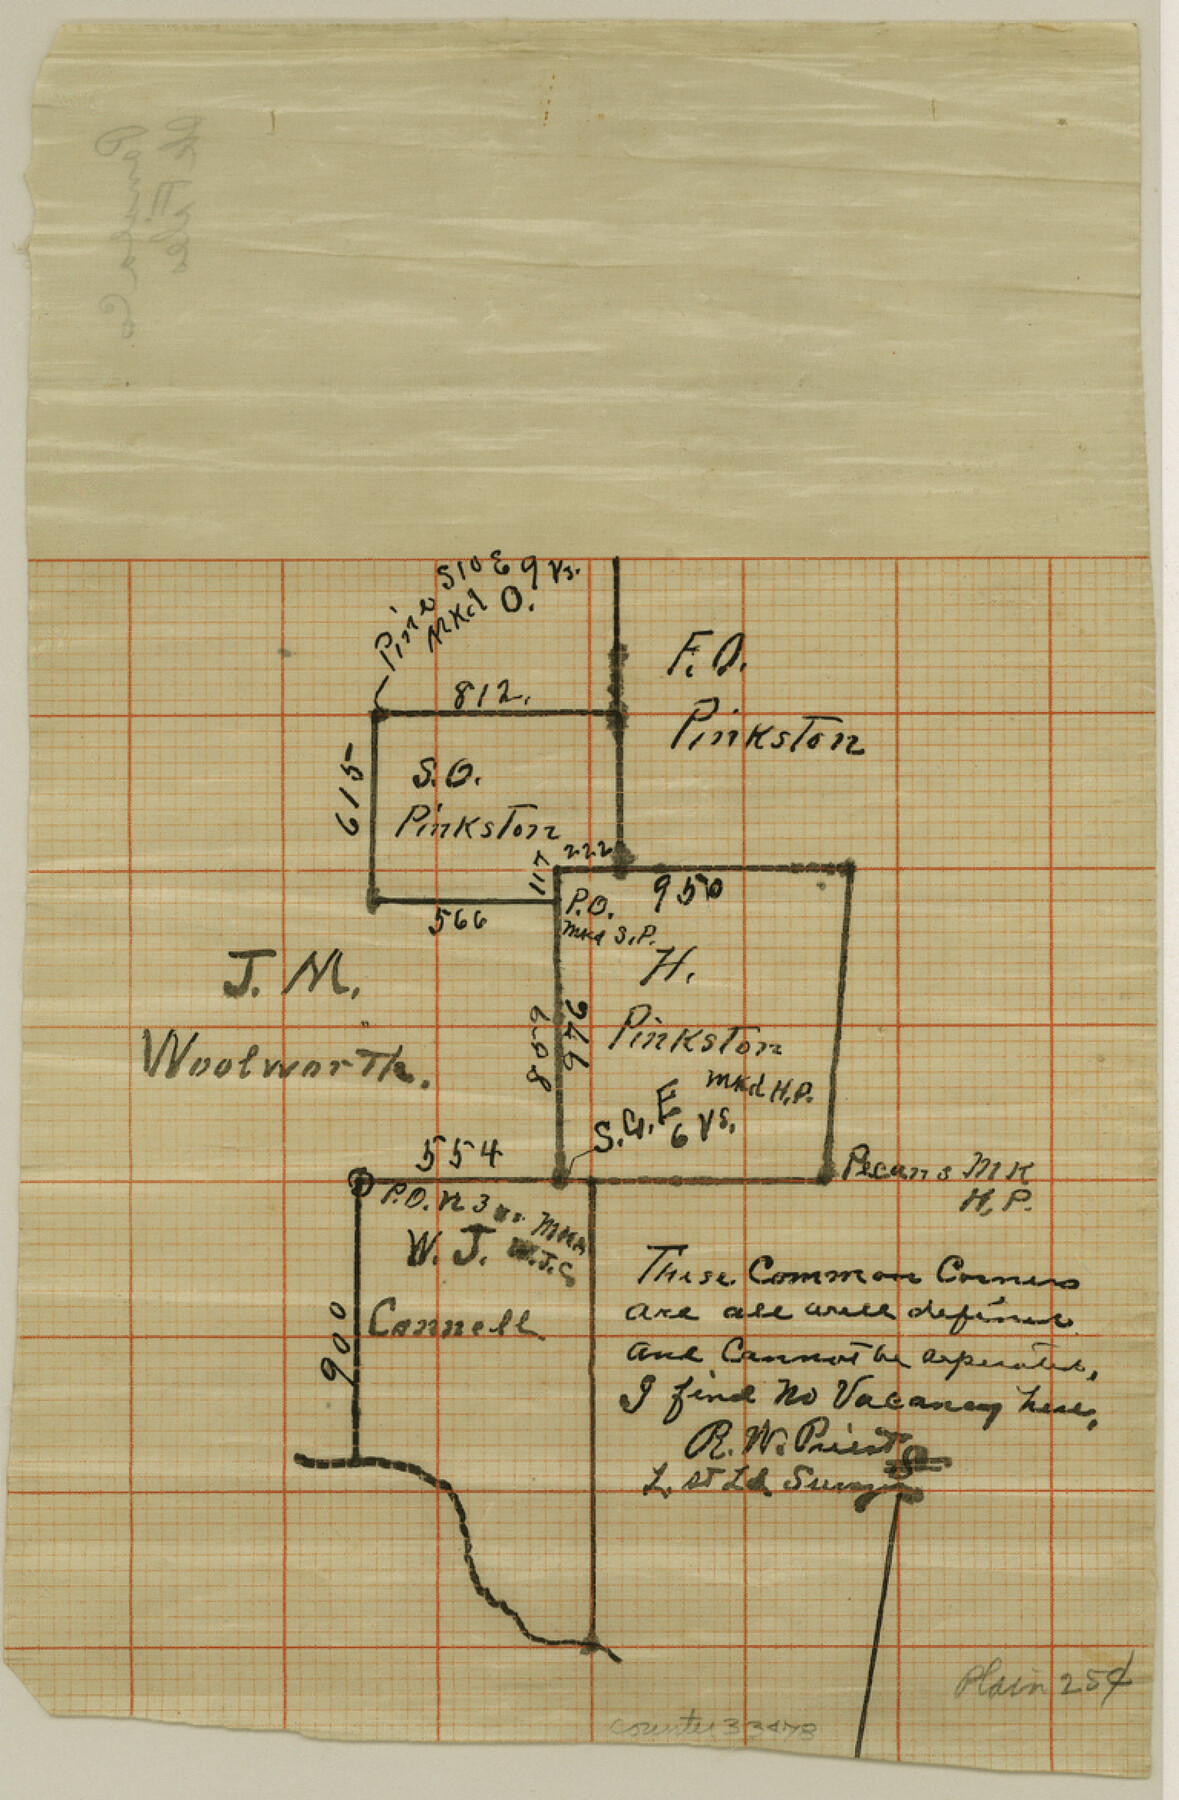 Pine S10E 9 Vs.
Mkd O.
812.
F.O.
Pinkston
615
S.O.
Pinkston
117
222
950
566
P.O.
mkd S.P.
J. M.
H.
Woolworth.
Pinkston
809
946
mkd H.P.
S.G. E
6 Vs.
554
Pecans MK
H.P.
P.O. N 3 vs MKd
W. J.
W.J.C.
Connell
900
These Common Corners
are all well defined
and Cannot be seperated,
I find No Vacancy here,
R. W. Priest
L. st Ld. Surv
Plain 25¢
counter 33478
Panola Co